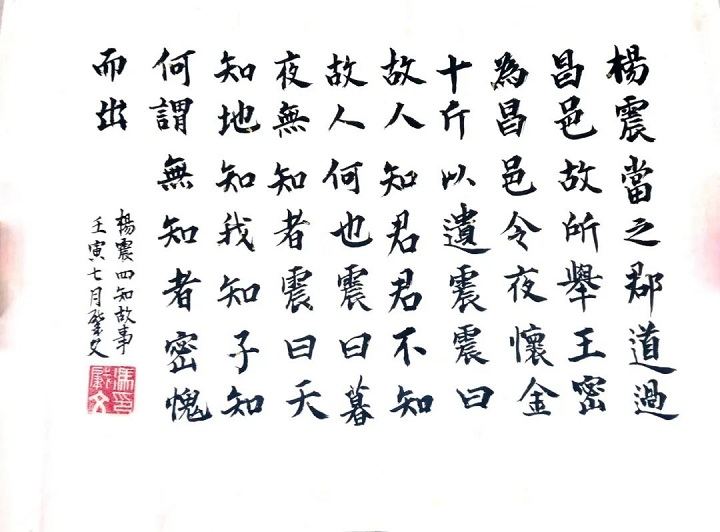 楊震當之郡道過
昌邑故所舉王密
為昌邑令夜懷金
十斤以遺震震曰
故人知君君不知
故人何也震曰暮
夜無知者震曰天
知地知我知子知
何謂無知者密愧
而出
楊震四知故事
壬寅七月肇文